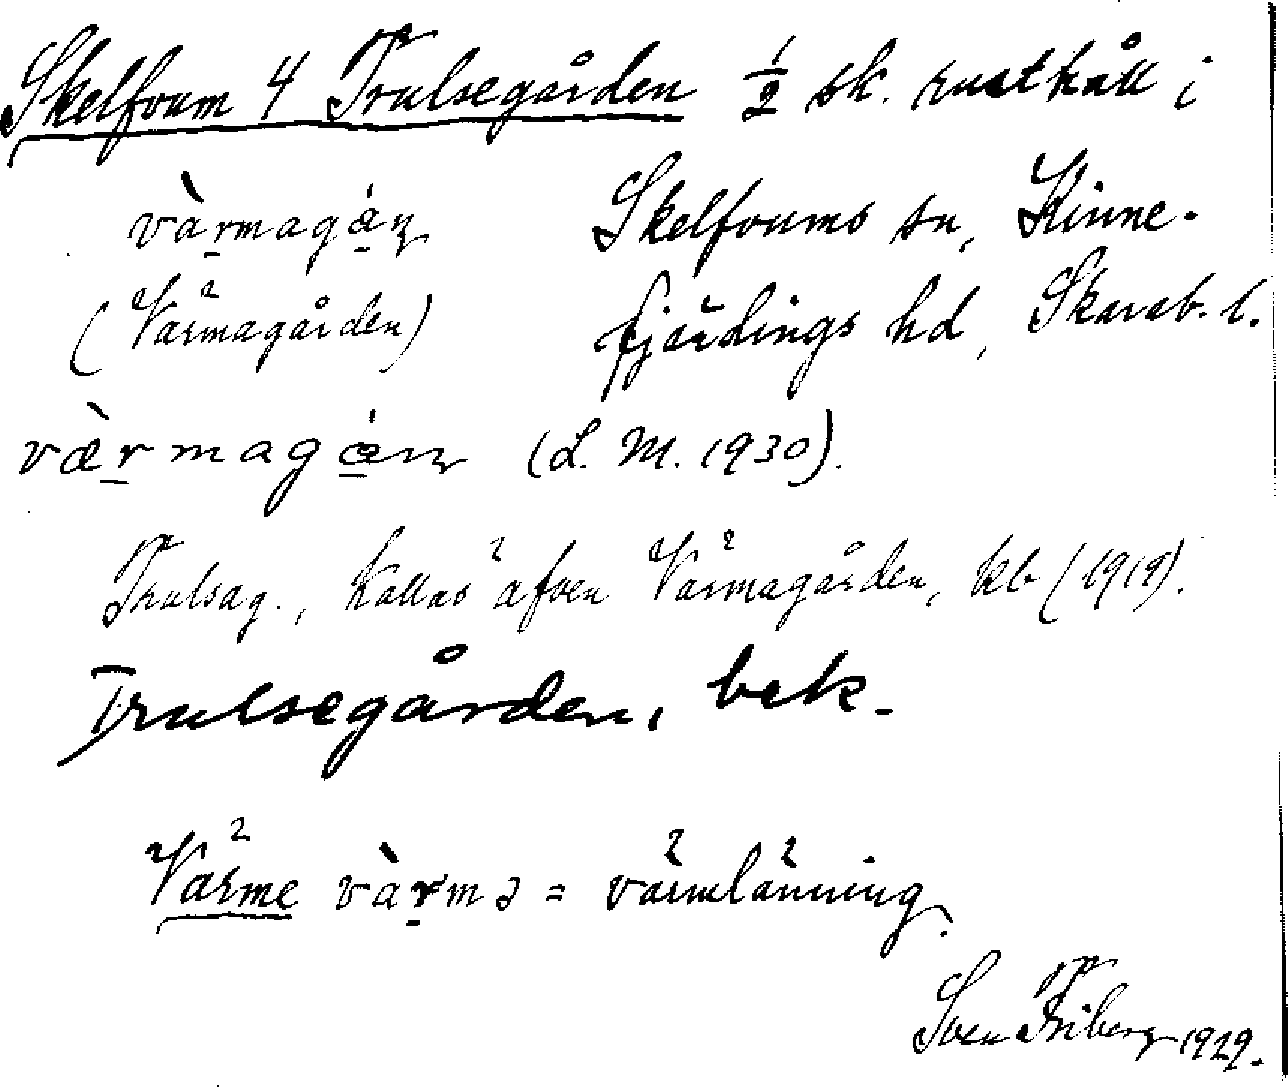 Skelfvum 4 Trulsegården ½ sk. rusthåll i
vàrmagán̥ Skelfvums sn, Kinne-
(Värmagården) fjärdings hd, Skarab. l.
værmagæn (L. M. 1930).
Trulsag., kallas äfven Värmagården, kb (1919).
Trulsegården, bek.
Värme vàrmə = värmlänning.
Sven Friberg 1929.